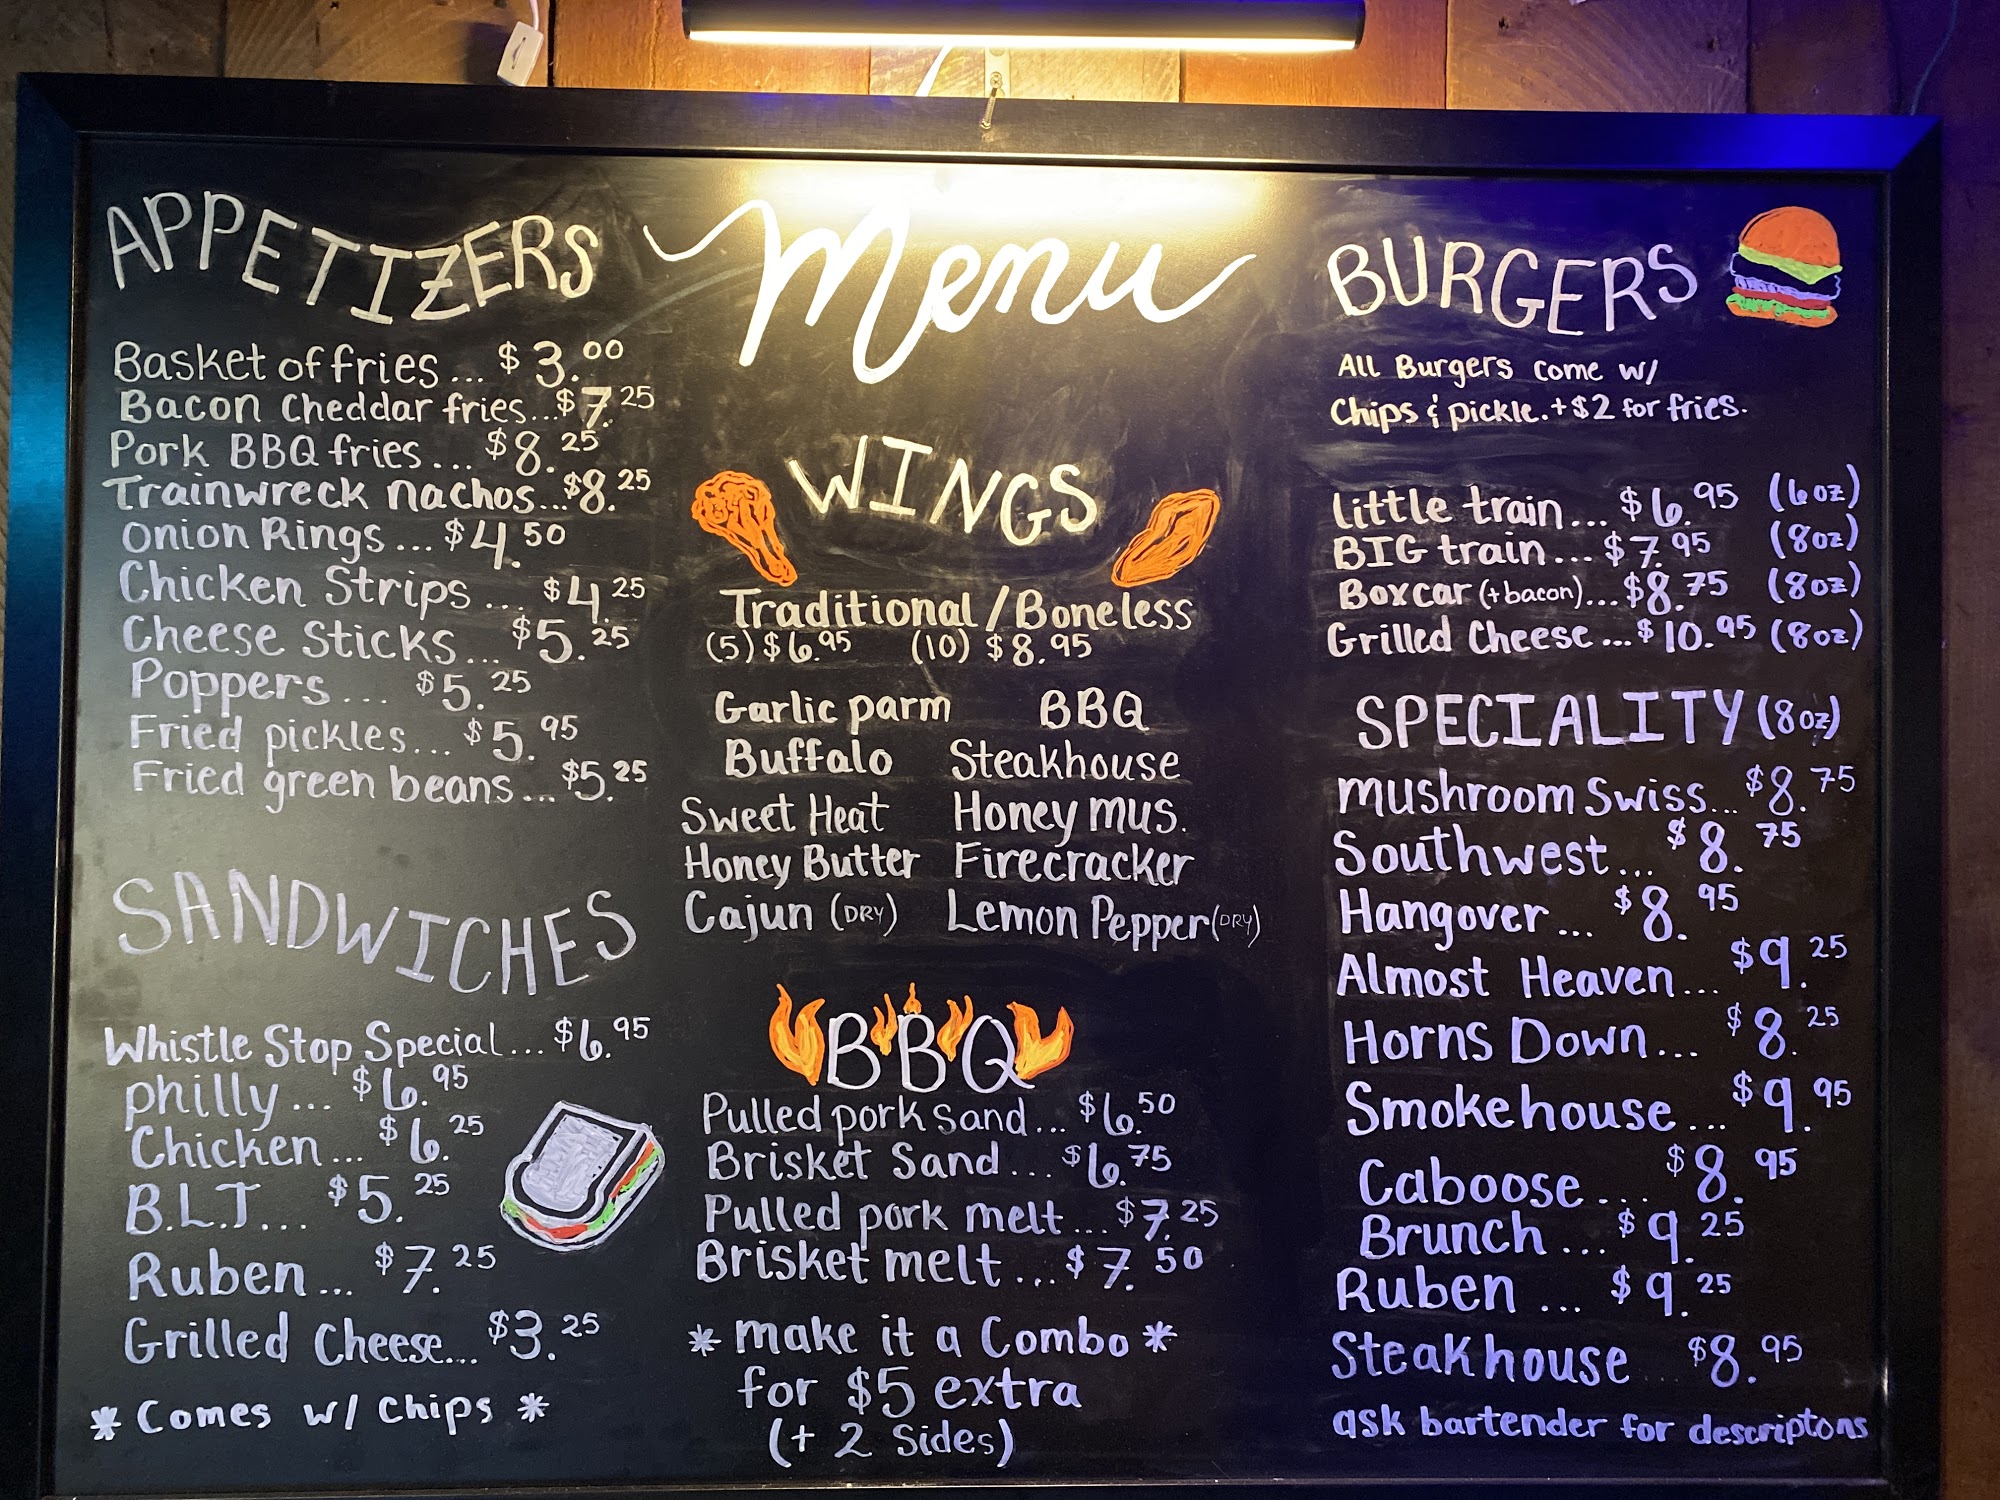 Menu
APPETIZERS
Basket of fries... $3.00
Bacon Cheddar fries...$7.25
Pork BBQ fries... $8.25
Trainwreck nachos...$8.25
Onion Rings... $4.50
Chicken Strips... $4.25
Cheese Sticks... $5.25
Poppers... $5.25
Fried pickles... $5.95
Fried green beans... $5.25
SANDWICHES
Whistle Stop Special... $6.95
Philly... $6.95
Chicken... $6.25
B.L.T... $5.25
Ruben... $7.25
Grilled Cheese... $3.25
* Comes w/ Chips *
WINGS
Traditional/Boneless
(5) $6.95 (10) $8.95
Garlic parm BBQ
Buffalo Steakhouse
Sweet Heat Honey mus.
Honey Butter Firecracker
Cajun (DRY) Lemon Pepper (DRY)
BBQ
Pulled pork sand... $6.50
Brisket Sand... $6.75
Pulled pork melt... $7.25
Brisket melt... $7.50
* make it a Combo *
for $5 extra
(+ 2 Sides)
BURGERS
All Burgers come w/
Chips & pickle. + $2 for fries.
Little train... $6.95 (6oz)
BIG train... $7.95 (8oz)
Boxcar (+bacon)... $8.75 (8oz)
Grilled Cheese... $10.95 (8oz)
SPECIALITY (8oz)
Mushroom Swiss... $8.75
Southwest... $8.75
Hangover... $8.95
Almost Heaven... $9.25
Horns Down... $8.25
Smokehouse... $9.95
Caboose... $8.95
Brunch... $9.25
Ruben... $9.25
Steakhouse... $8.95
ask bartender for descriptons